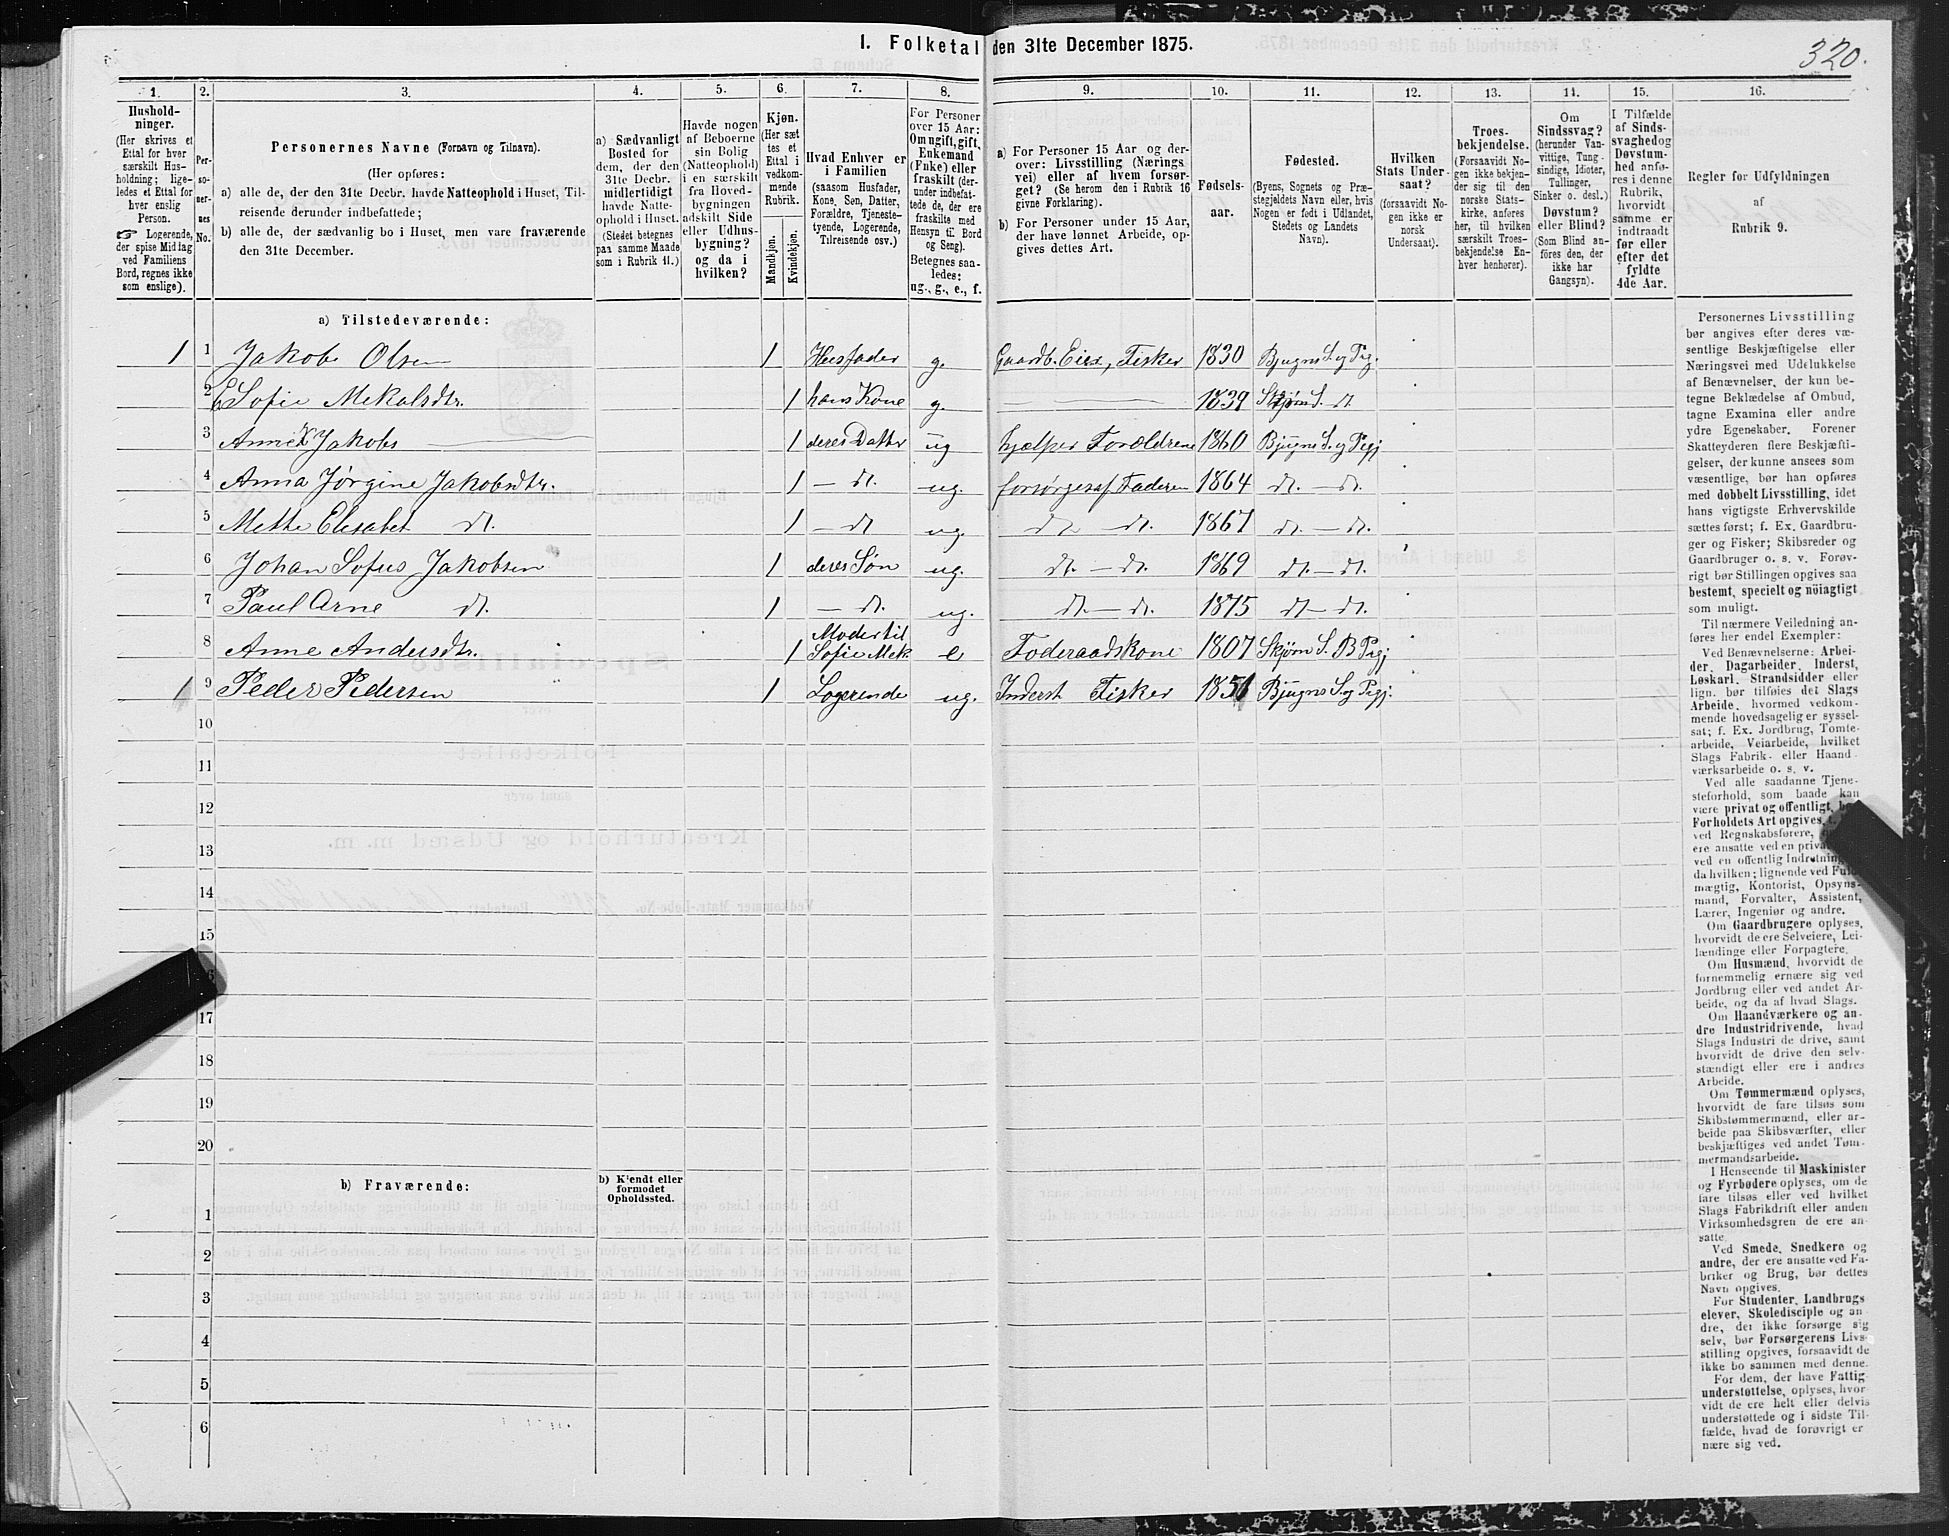 I. Folketal den 31te December 1875.
320.
1. 2. 3. 4. 5. 6. 7. 8. 9. 10. 11. 12. 13. 14. 15. 16.
Husholdninger.
(Her skrives et
Ettal for hver
særskilt Husholdning; ligeledes et Ettal for
hver enslig
Person.
☞ Logerende,
der spise Middag
ved Familiens
Bord, regnes ikke
som enslige).
Personernes No.
Personernes Navne (Fornavn og Tilnavn).
(Her opføres:
a) alle de, der den 31te Decbr. havde Natteophold i Huset, Tilreisende derunder indbefattede;
b) alle de, der sædvanlig bo i Huset, men vare fraværende
den 31te December.
a) Sædvanligt
Bosted for
dem, der den
31te Decbr.
midlertidigt
havde Natteophold i Huset.
(Stedet betegnes
paa samme Maade
som i Rubrik 11.)
Havde nogen
af Beboerne
sin Bolig
(Natteophold)
i en særskilt
fra Hovedbygningen
adskilt Side
eller Udhusbygning?
og da i
hvilken?
Kjøn.
(Her sættes et
Ettal i
vedkommende
Rubrik.
Mandkjøn.
Kvindekjøn.
Hvad Enhver er
i Familien
(saasom Husfader,
Kone, Søn, Datter,
Forældre, Tjenestetyende, Logerende,
Tilreisende osv.)
For Personer
over 15 Aar:
Om ugift, gift,
Enkemand
(Enke) eller
fraskilt (derunder indbefattede de, der ere
fraskilte med
Hensyn til Bord
og Seng).
Betegnes saaledes:
ug., g., e., f.
a) For Personer 15 Aar og derover: Livsstilling (Næringsvei) eller af hvem forsørget? (Se herom den i Rubrik 16
givne Forklaring).
b) For Personer under 15 Aar,
der have lønnet Arbeide, opgives dettes Art.
Fødselsaar.
Fødested.
(Byens, Sognets og Præstegjeldets Navn eller, hvis
Nogen er født i Udlandet,
Stedets og Landets
Navn).
Hvilken
Stats Undersaat?
(forsaavidt Nogen ikke er
norsk
Undersaat).
Troesbekjendelse.
(Forsaavidt Nogen ikke bekjender sig til den
norske Statskirke, anføres
her, til hvilken
særskilt Troesbekjendelse Enhver henhører).
Om
Sindssvag?
(herunder Vanvittige, Tungsindige, Idioter,
Tallinger,
Sinker o. desl.)
Døvstum?
eller Blind?
(Som Blind anføres den, der
ikke har
Gangsyn).
I Tilfælde
af Sindssvaghed og
Døvstumhed anføres i denne
Rubrik,
hvorvidt
samme er
indtraadt
før eller
efter det
fyldte
4de Aar.
Regler for Udfyldningen
af
Rubrik 9.
a) Tilstedeværende:
1 1 Jakob Olsen 1 Husfader g. Gaardb. Eier, Fisker 1830 Bjugns S. og Pg.
2 Sofie Mekalsdtr. 1 hans Kone g. 1839 Skjørn S. dt
3 Anne Jakobs 1 deres Datter ug hjælper Forældrene 1860 Bjugns S. og Pgj
4 Anna Jørgine Jakobsdtr. 1 — dt. ug. forsørges af Faderen 1864 dt. — dt.
5 Mette Elisabet dt. 1 — dt ug. dt — dt. 1867 dt. — dt.
6 Johan Sofus Jakobsen 1 deres Søn ug. dt. — dt. 1869 dt. — dt.
7 Paul Arne dt. 1 — dt. ug. dt. — dt. 1875 dt — dt.
8 Anne Andersdtr. 1 Moder til Sofie Mek. e Foderaadskone 1807 Skjørn S. B Pgj
1 9 Peder Pedersen 1 Logerende ug. Inderst Fisker 1851 Bjugns S. og Pgj.
10
11
12
13
14
15
17
18
19
20
b) Fraværende:
b) Kjendt eller
formodet
Opholdssted.
1
2
3
4
5
6
Personernes Livsstilling
bør angives efter deres væsentlige Beskjæftigelse eller
Næringsvei med Udelukkelse
af Benævnelser, der kun betegne Beklædelse af Ombud,
tagne Examina eller andre
ydre Egenskaber. Forener
Skatteyderen flere Beskjæftigelser, der kunne ansees som
væsentlige, bør han opføres
med dobbelt Livsstilling, idet
hans vigtigste Erhvervskilde
sættes først; f. Ex. Gaardbruger og Fisker; Skibsreder og
Gaardbruger o. s. v. Forøvrigt bør Stillingen opgives saa
bestemt, specielt og nøiagtigt
som muligt.
Til nærmere Veiledning anføres her endel Exempler:
Ved Benævnelserne: Arbeider, Dagarbeider, Inderst,
Løskarl, Strandsidder eller
lign. bør tilføies det Slags
Arbeide, hvormed vedkommende hovedsagelig er sysselsat; f. Ex. Jordbrug, Tomtearbeide, Veiarbeide, hvilket
Slags Fabrik- eller Haandværksarbeide o. s. v.
Ved alle saadanne Tjenesteforhold, som baade kan
være privat og offentligt,
Forholdets Art opgives,
ved Regnskabsførere,
ere ansatte ved en privat
ved en offentlig Indretning
da hvilken; lignende ved Fuldmægtig, Kontorist, Opsynsmand, Forvalter, Assistent,
Lærer, Ingeniør og andre.
Om Gaardbrugere oplyses,
hvorvidt de ere Selveiere, Leilændinge eller Forpagtere.
Om Husmænd, hvorvidt de
fornemmelig ernære sig ved
Jordbrug eller ved andet Arbeide, og da af hvad Slags.
Om Haandværkere og andre Industridrivende, hvad
Slags Industri de drive, samt
hvorvidt de drive den selvstændigt eller ere i andres
Arbeide.
Om Tømmermænd oplyses,
hvorvidt de fare tilsøs som
Skibstømmermænd, eller arbeide paa Skibsværfter, eller
beskjæftiges ved andet Tømmermandsarbeide.
I Henseende til Maskinister
og Fyrbødere oplyses, om de
fare tilsøs eller ved hvilket
Slags Fabrikdrift eller anden
Virksomhedsgren de ere ansatte.
Ved Smede, Snedkere og
andre, der ere ansatte ved Fabriker og Brug, bør dettes
Navn opgives.
For Studenter, Landbrugselever, Skoledisciple og andre, der ikke forsørge sig
selv, bør Forsørgerens Livsstilling opgives, forsaavidt de
ikke bo sammen med denne.
For dem, der have Fattigunderstøttelse, oplyses, hvorvidt de ere helt eller delvis
understøttede og i sidste Tilfælde, hvad de forøvrigt ernære sig ved.